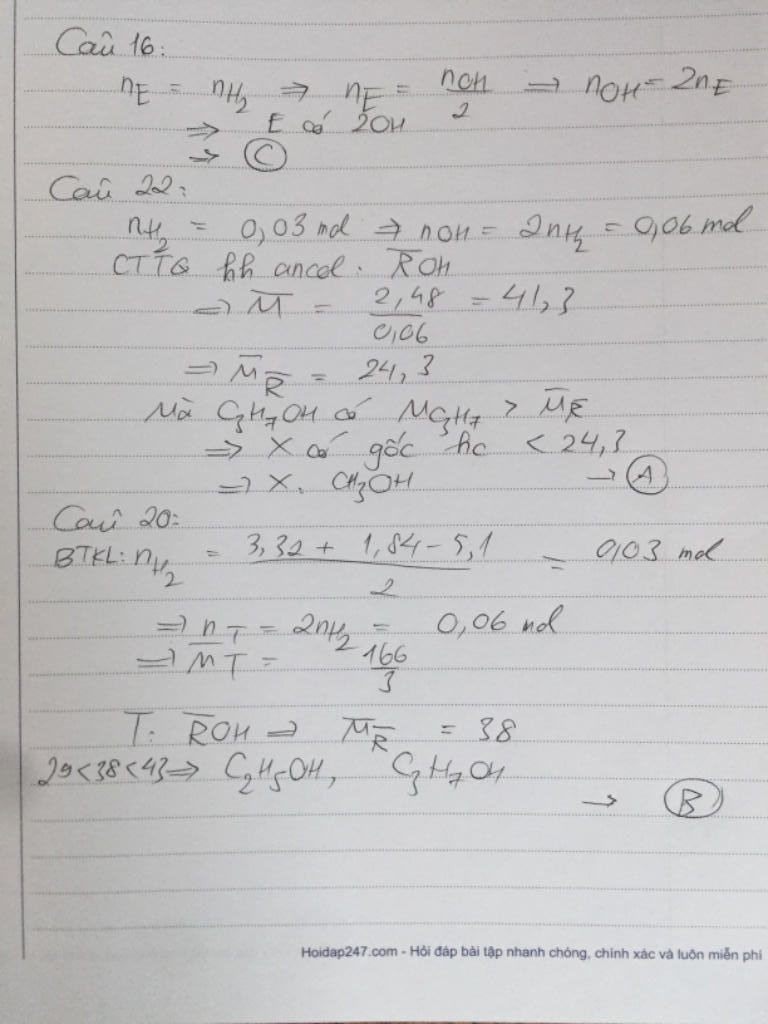 Câu 16:
nE = nH2 ⇒ nE = nOH/2 ⇒ nOH = 2nE
⇒ E có 2OH
→ (C)
Câu 22:
nH2 = 0,03 mol ⇒ nOH = 2nH2 = 0,06 mol
CTTQ hh ancol: R̅OH
⇒ M̅ = 2,48/0,06 = 41,3
⇒ M̅R̅ = 24,3
Mà C3H7OH có MC3H7 > M̅R̅
⇒ X có gốc hc < 24,3
⇒ X. CH3OH → (A)
Câu 20:
BTKL: nH2 = (3,32 + 1,84 - 5,1)/2 = 0,03 mol
⇒ nT = 2nH2 = 0,06 mol
⇒ M̅T = 166/3
T: R̅OH ⇒ M̅R̅ = 38
29<38<43 ⇒ C2H5OH, C3H7OH
→ (B)
Hoidap247.com - Hỏi đáp bài tập nhanh chóng, chính xác và luôn miễn phí